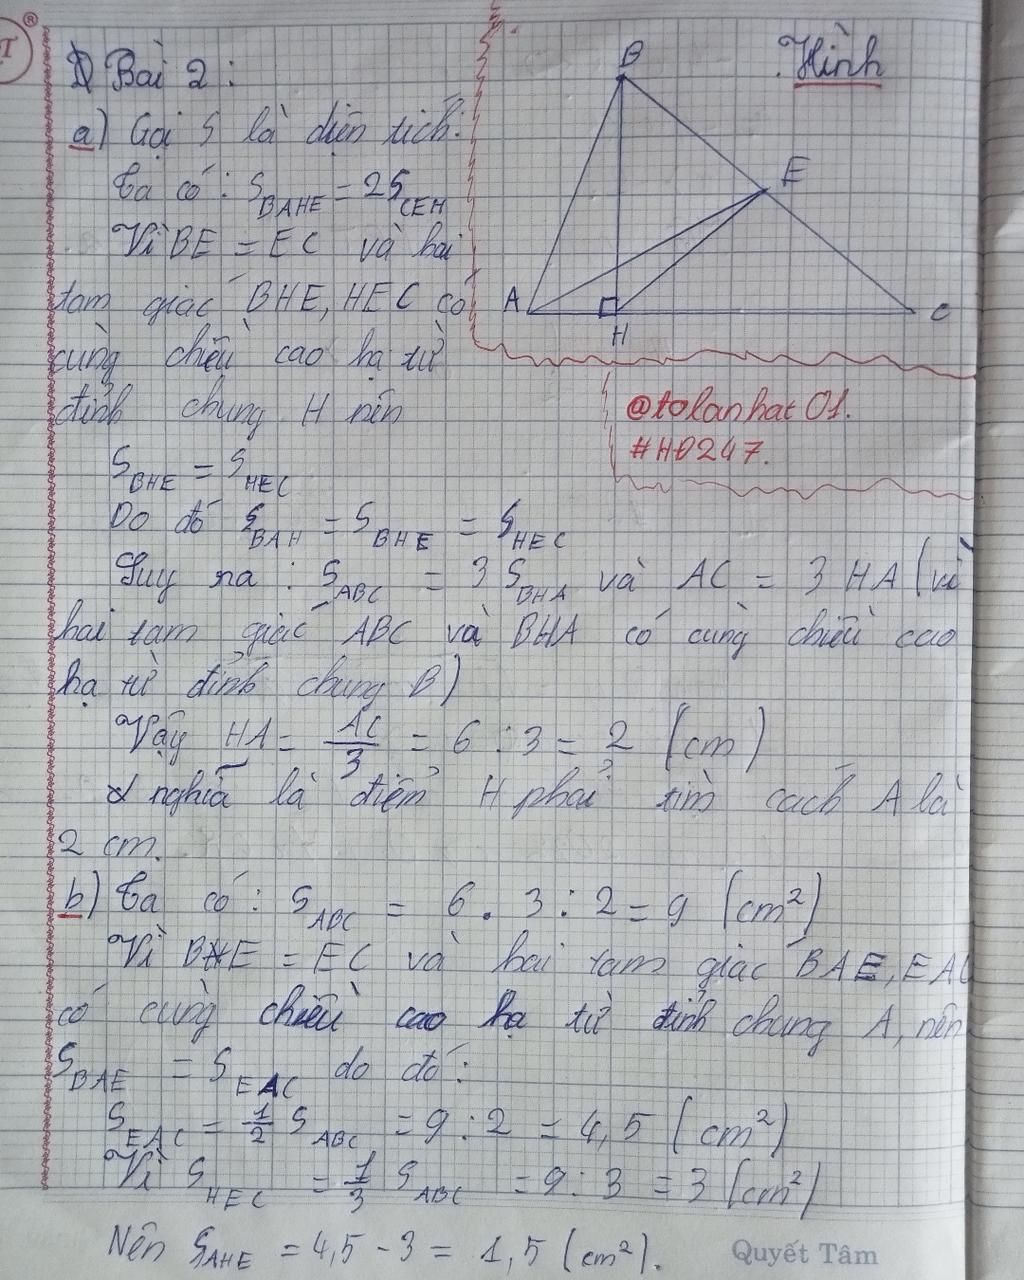 Bài 2 :
Hình
a) Gọi S là diện tích.
Ta có : S BAHE = 2S CEH
Vì BE = EC và hai
tam giác BHE, HEC có
cùng chiều cao hạ từ
đỉnh chung H nên
S BHE = S HEC
Do đó S BAH = S BHE = S HEC
Suy ra : S ABC = 3 S BHA và AC = 3 HA (vì
hai tam giác ABC và BHA có cùng chiều cao
hạ từ đỉnh chung B)
Vậy HA = AC/3 = 6 : 3 = 2 (cm)
nghĩa là điểm H phải tìm cách A là
2 cm.
b) Ta có : S ABC = 6 . 3 : 2 = 9 (cm²)
Vì BE = EC và hai tam giác BAE, EAC
có cùng chiều cao hạ từ đỉnh chung A, nên
S BAE = S EAC do đó :
S EAC = 1/2 S ABC = 9 : 2 = 4,5 (cm²)
Vì S HEC = 1/3 S ABC = 9 : 3 = 3 (cm²)
Nên S AHE = 4,5 - 3 = 1,5 (cm²).
B
E
A
H
C
@tolanhat01.
#HD247.
Quyết Tâm
T
®